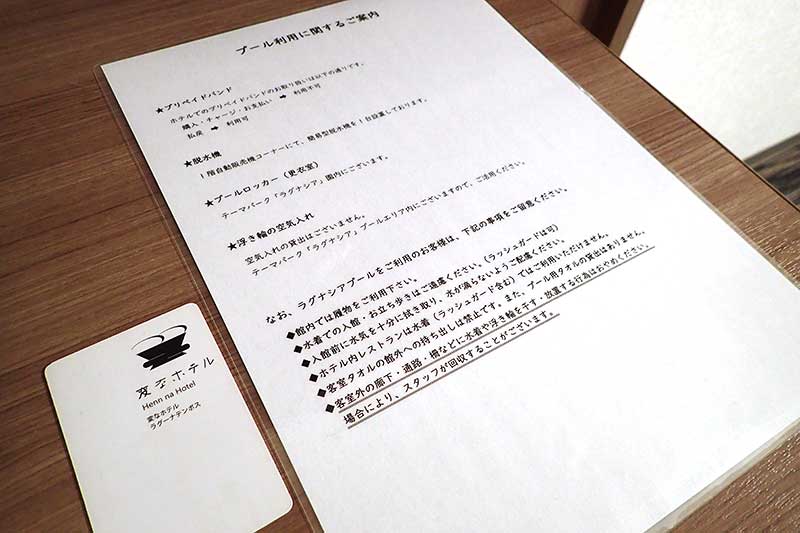 プール利用に関するご案内
★プリペイドバンド
ホテルでのプリペイドバンドのお取り扱いは以下の通りです。
購入・チャージ・お支払い ➡ 利用不可
払戻 ➡ 利用可
★脱水機
1階自動販売機コーナーにて、簡易型脱水機を1台設置しております。
★プールロッカー（更衣室）
テーマパーク「ラグナシア」園内にございます。
★浮き輪の空気入れ
空気入れの貸出はございません。
テーマパーク「ラグナシア」プールエリア内にございますので、ご活用ください。
なお、ラグナシアプールをご利用のお客様は、下記の事項をご留意ください。
◆館内では履物をご利用下さい。
◆水着での入館・お立ち歩きはご遠慮ください。（ラッシュガードは可）
◆入館前に水気を十分に拭き取り、水が滴らないようご配慮ください。
◆ホテル内レストランは水着（ラッシュガード含む）ではご利用いただけません。
◆客室タオルの館外への持ち出しは禁止です。また、プール用タオルの貸出はありません。
◆客室外の廊下・通路・柵などに水着や浮き輪を干す・放置する行為はおやめください。
場合により、スタッフが回収することがございます。
変なホテル
Henn na Hotel
変なホテル
ラグーナテンボス